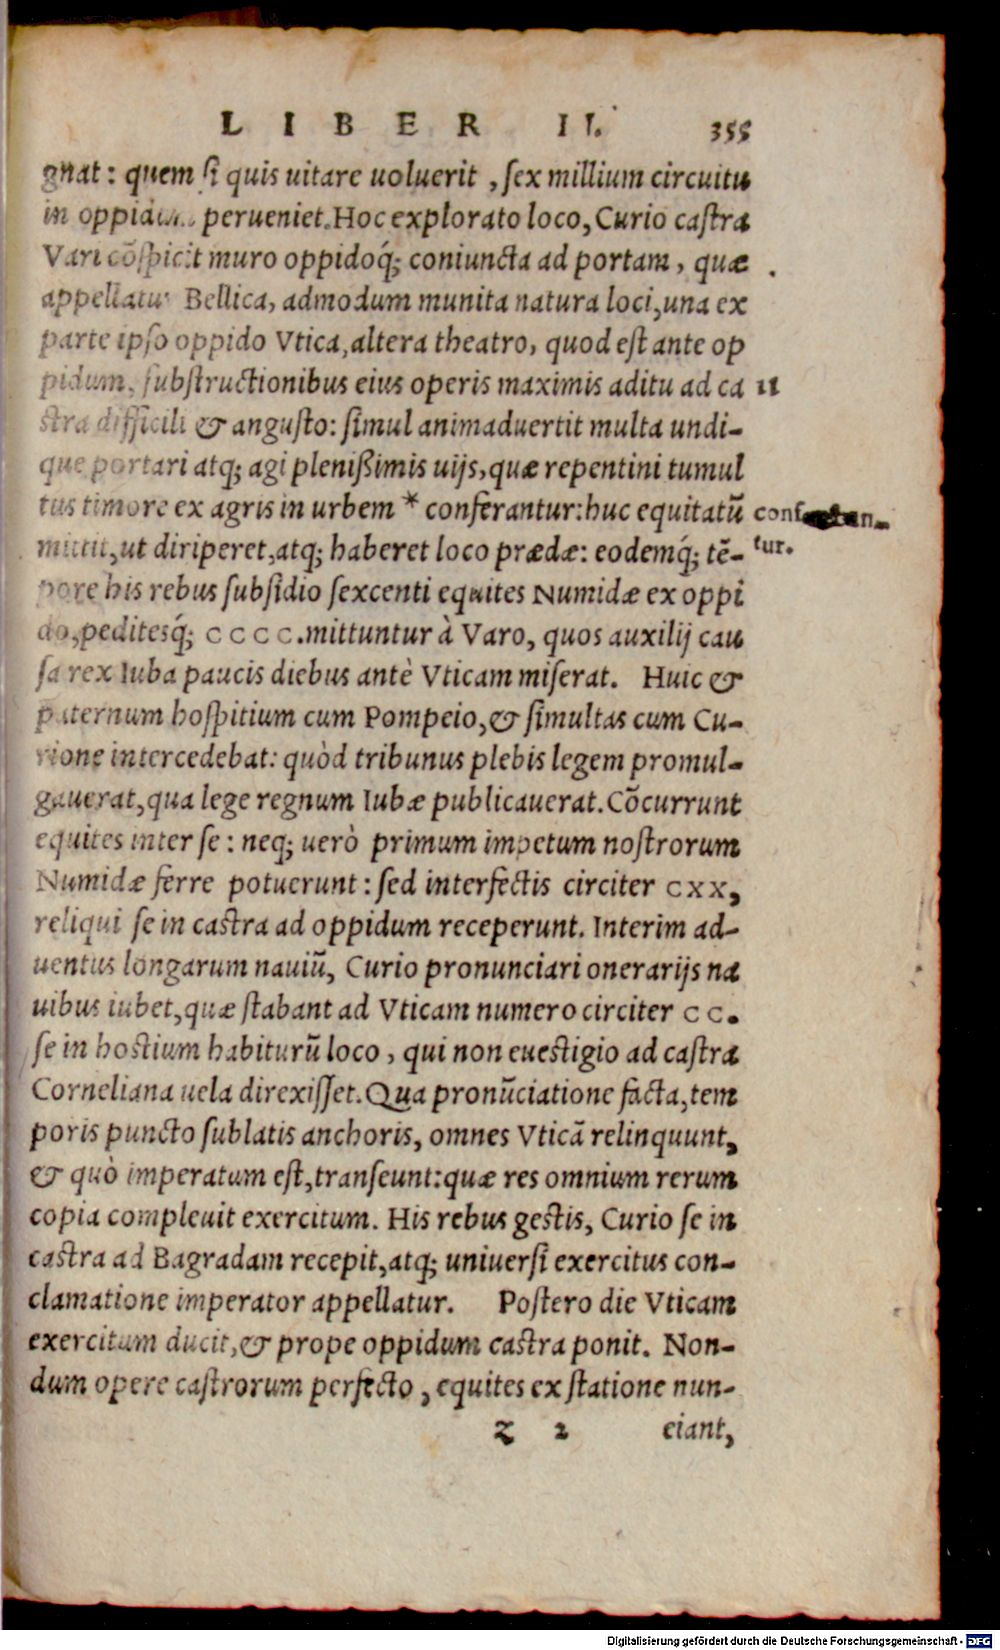 LIBER II. 355
gnat: quem si quis uitare uoluerit, sex millium circuitu
in oppidum perueniet. Hoc explorato loco, Curio castra
Vari cōspicit muro oppidoq́; coniuncta ad portam, quæ
appellatur Bellica, admodum munita natura loci, una ex
parte ipso oppido Vtica, altera theatro, quod est ante op
pidum, substructionibus eius operis maximis aditu ad ca
stra difficili & angusto: simul animaduertit multa undi-
que portari atq; agi plenißimis uijs, quæ repentini tumul
tus timore ex agris in urbem * conferantur: huc equitatū
mittit, ut diriperet, atq; haberet loco prædæ: eodemq́; tē-
pore his rebus subsidio sexcenti equites Numidæ ex oppi
do, peditesq́; cccc. mittuntur à Varo, quos auxilij cau
sa rex Iuba paucis diebus antè Vticam miserat. Huic &
paternum hospitium cum Pompeio, & simultas cum Cu-
rione intercedebat: quòd tribunus plebis legem promul-
gauerat, qua lege regnum Iubæ publicauerat. Cōcurrunt
equites inter se: neq; uerò primum impetum nostrorum
Numidæ ferre potuerunt: sed interfectis circiter cxx,
reliqui se in castra ad oppidum receperunt. Interim ad-
uentus longarum nauiū, Curio pronunciari onerarijs na
uibus iubet, quæ stabant ad Vticam numero circiter cc.
se in hostium habiturū loco, qui non euestigio ad castra
Corneliana uela direxisset. Qua pronūciatione facta, tem
poris puncto sublatis anchoris, omnes Vticā relinquunt,
& quò imperatum est, transeunt: quæ res omnium rerum
copia compleuit exercitum. His rebus gestis, Curio se in
castra ad Bagradam recepit, atq; uniuersi exercitus con-
clamatione imperator appellatur. Postero die Vticam
exercitum ducit, & prope oppidum castra ponit. Non-
dum opere castrorum perfecto, equites ex statione nun-
z 2 ciant,
11
tur.
Digitalisierung gefördert durch die Deutsche Forschungsgemeinschaft - DFG